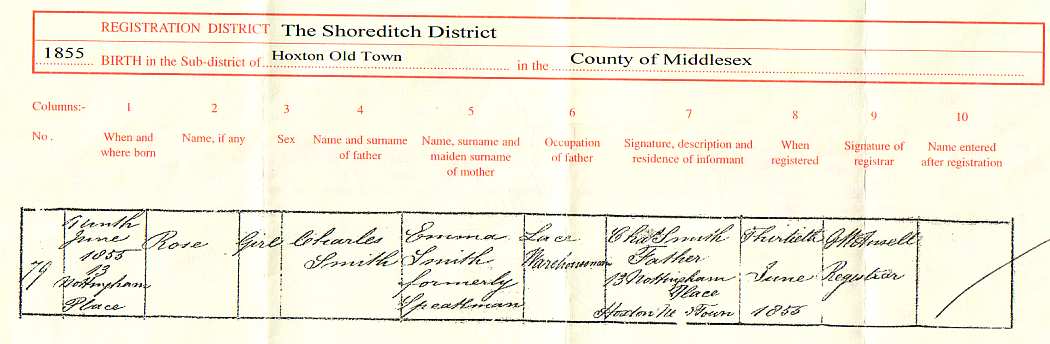 REGISTRATION DISTRICT The Shoreditch District
1855 BIRTH in the Sub-district of Hoxton Old Town in the County of Middlesex
Columns:- 1 2 3 4 5 6 7 8 9 10
No. When and where born Name, if any Sex Name and surname of father Name, surname and maiden surname of mother Occupation of father Signature, description and residence of informant When registered Signature of registrar Name entered after registration
79
June
1855
13
Nottingham
Place
Rose
Girl
Charles
Smith
Emma
Smith
formerly
Speakman
Lace
Warehouseman
Chas Smith
Father
13 Nottingham
Place
Hoxton Town
Thirtieth
June
1855
Registrar